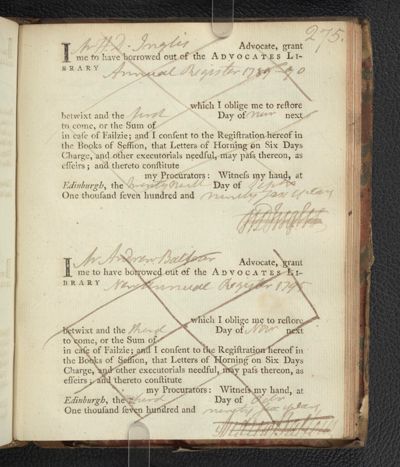 275.
I Mr H. D. Inglis Advocate, grant
me to have borrowed out of the ADVOCATES LI-
BRARY Annual Register 1789-90
which I oblige me to reſtore
betwixt and the first Day of Nov next
to come, or the Sum of
in caſe of Failzie; and I conſent to the Regiſtration hereof in
the Books of Seſſion, that Letters of Horning on Six Days
Charge, and other executorials needful, may paſs thereon, as
effeirs; and thereto conſtitute
my Procurators: Witneſs my hand, at
Edinburgh, the Day of
One thouſand ſeven hundred and ninety six years
I Mr Andrew Balfour Advocate, grant
me to have borrowed out of the ADVOCATES LI-
BRARY New Annual Register 1795
which I oblige me to reſtore
betwixt and the third Day of Nov next
to come, or the Sum of
in caſe of Failzie; and I conſent to the Regiſtration hereof in
the Books of Seſſion, that Letters of Horning on Six Days
Charge, and other executorials needful, may paſs thereon, as
effeirs; and thereto conſtitute
my Procurators: Witneſs my hand, at
Edinburgh, the third Day of
One thouſand ſeven hundred and ninety six years